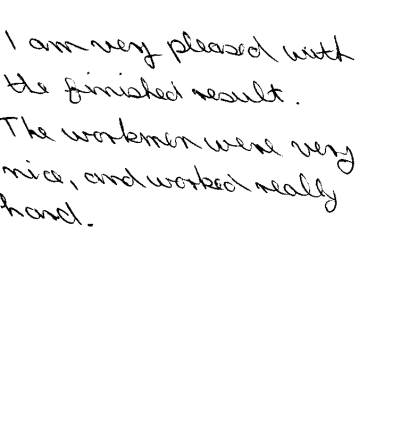 I am very pleased with
the finished result.
The workmen were very
nice, and worked really
hard.